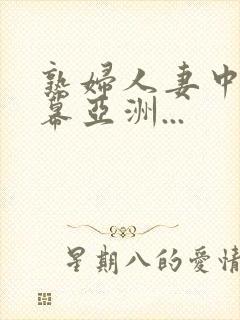 熟婦人妻中
幕亞洲...
星期八的愛情